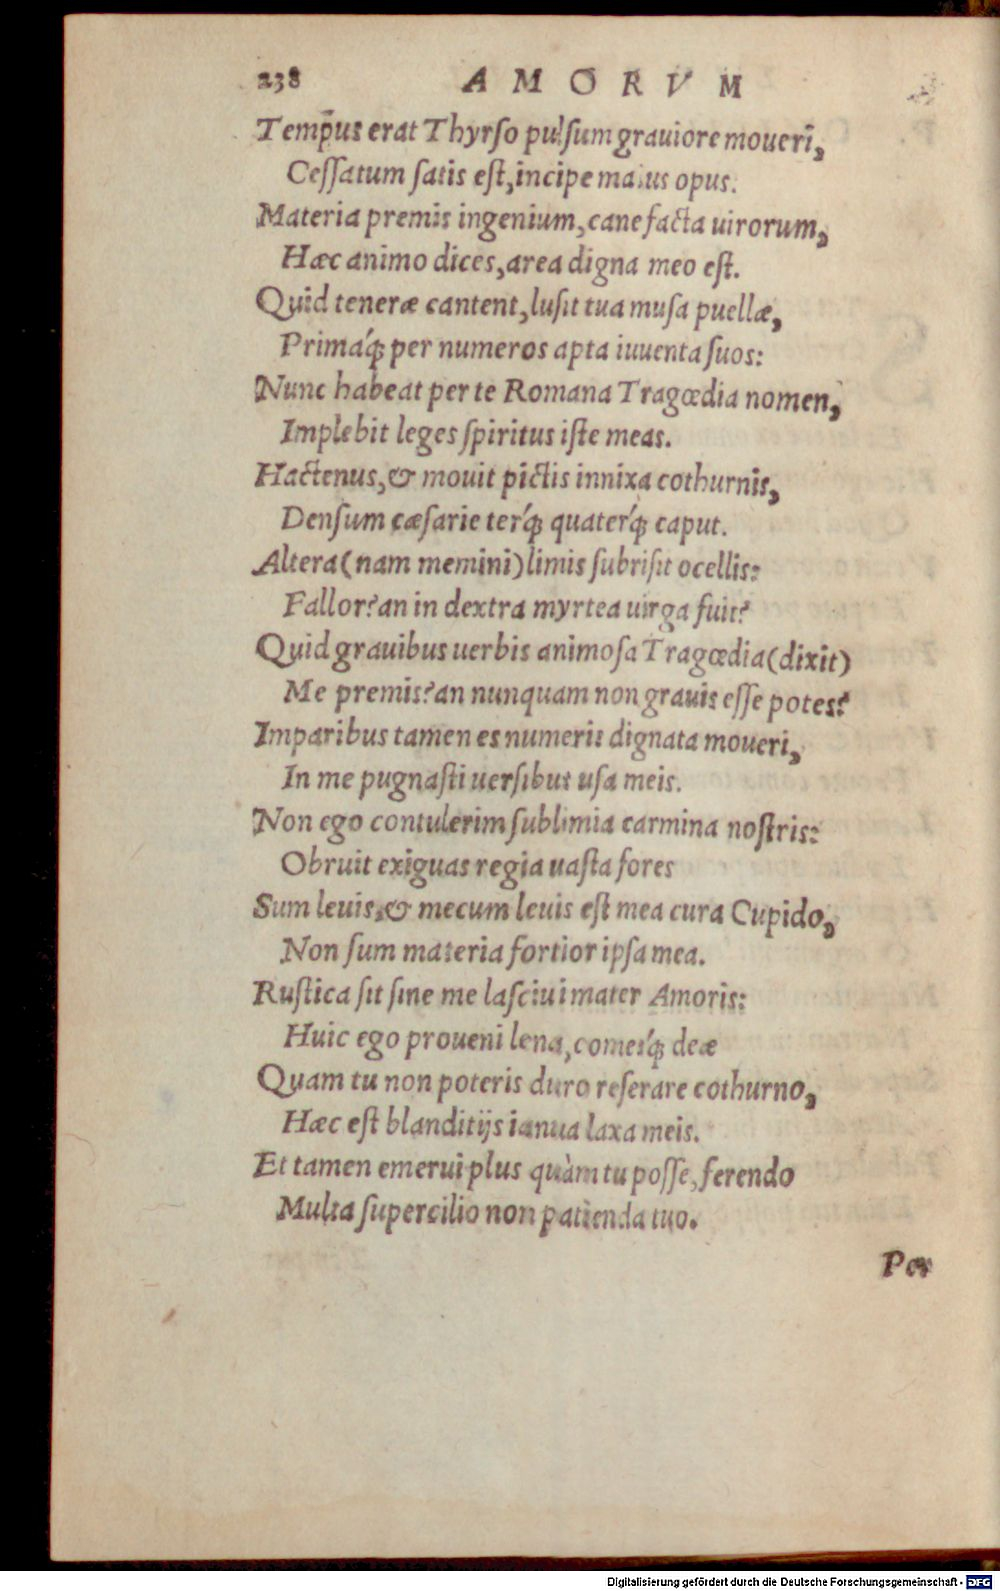 238 AMORVM
Tempus erat Thyrso pulſum grauiore moueri,
Ceſſatum ſatis eſt, incipe maius opus.
Materia premis ingenium, cane facta uirorum,
Hæc animo dices, area digna meo eſt.
Quid teneræ cantent, luſit tua muſa puellæ,
Primáq́; per numeros apta iuuenta ſuos:
Nunc habeat per te Romana Tragœdia nomen,
Implebit leges ſpiritus iſte meas.
Hactenus, & mouit pictis innixa cothurnis,
Denſum cæſarie terq́; quaterq́; caput.
Altera (nam memini) limis ſubriſit ocellis:
Fallor? an in dextra myrtea uirga fuit?
Quid grauibus uerbis animoſa Tragœdia (dixit)
Me premis? an nunquam non grauis eſſe potes?
Imparibus tamen es numeris dignata moueri,
In me pugnaſti uerſibus uſa meis.
Non ego contulerim ſublimia carmina noſtris:
Obruit exiguas regia uaſta fores
Sum leuis, & mecum leuis eſt mea cura Cupido,
Non ſum materia fortior ipſa mea.
Ruſtica ſit ſine me laſciui mater Amoris:
Huic ego proueni lena, comesq́; deæ
Quam tu non poteris duro reſerare cothurno,
Hæc eſt blanditijs ianua laxa meis.
Et tamen emerui plus quàm tu poſſe, ferendo
Multa ſupercilio non patienda tuo.
Per
Digitalisierung gefördert durch die Deutsche Forschungsgemeinschaft - DFG